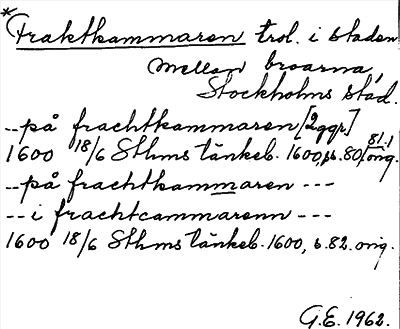 *
Fraktkammaren trol. i staden
mellan broarna,
Stockholms stad.
-- på frachtkammaren [2 ggr]
1600 18/6 Sthms tänkeb. 1600, s. 80, 81.1 orig.
-- på frachtkammaren ---
-- i frachtcammarenn ---
1600 18/6 Sthms tänkeb. 1600, s. 82. orig.
G.E. 1962.